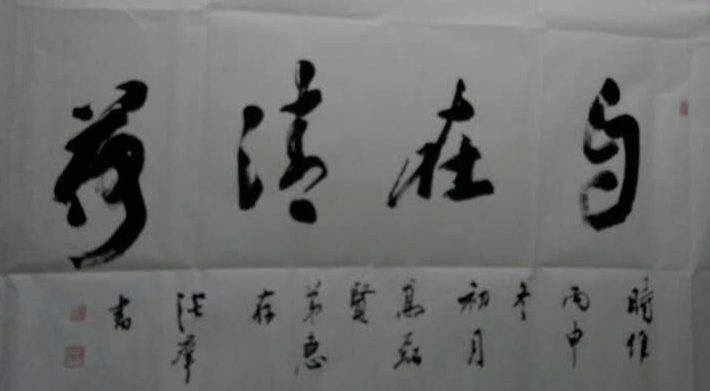 自在清荷
時維
丙申
冬
初月
高
賢
弟惠
存
張群
書